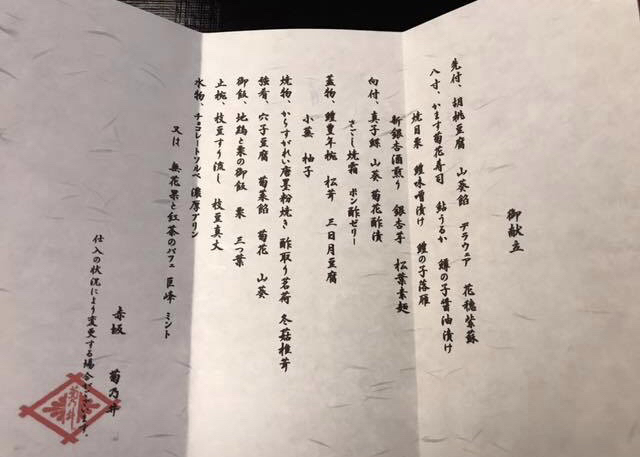 御献立
先付、胡桃豆腐 山葵餡 デラウェア 花穂紫蘇
八寸、かます菊花寿司 鮎うるか 鱒の子醤油漬け
焼目栗 鱧味噌漬け 鱧の子落雁
新銀杏酒煎り 銀杏芋 松葉素麺
向付、真子鰈 山葵 菊花酢漬
さごし焼霜 ポン酢ゼリー
蓋物、鱧豊年椀 松茸 三日月豆腐
小蕪 柚子
焼物、からすがれい唐墨粉焼き 酢取り茗荷 冬菇椎茸
強肴、穴子豆腐 菊菜餡 菊花 山葵
御飯、地鶏と栗の御飯 栗 三つ葉
止椀、枝豆すり流し 枝豆真丈
水物、チョコレートソルベ 濃厚プリン
又は 無花果と紅茶のパフェ 巨峰 ミント
赤坂 菊乃井
仕入の状況により変更する場合がございます。
菊乃井